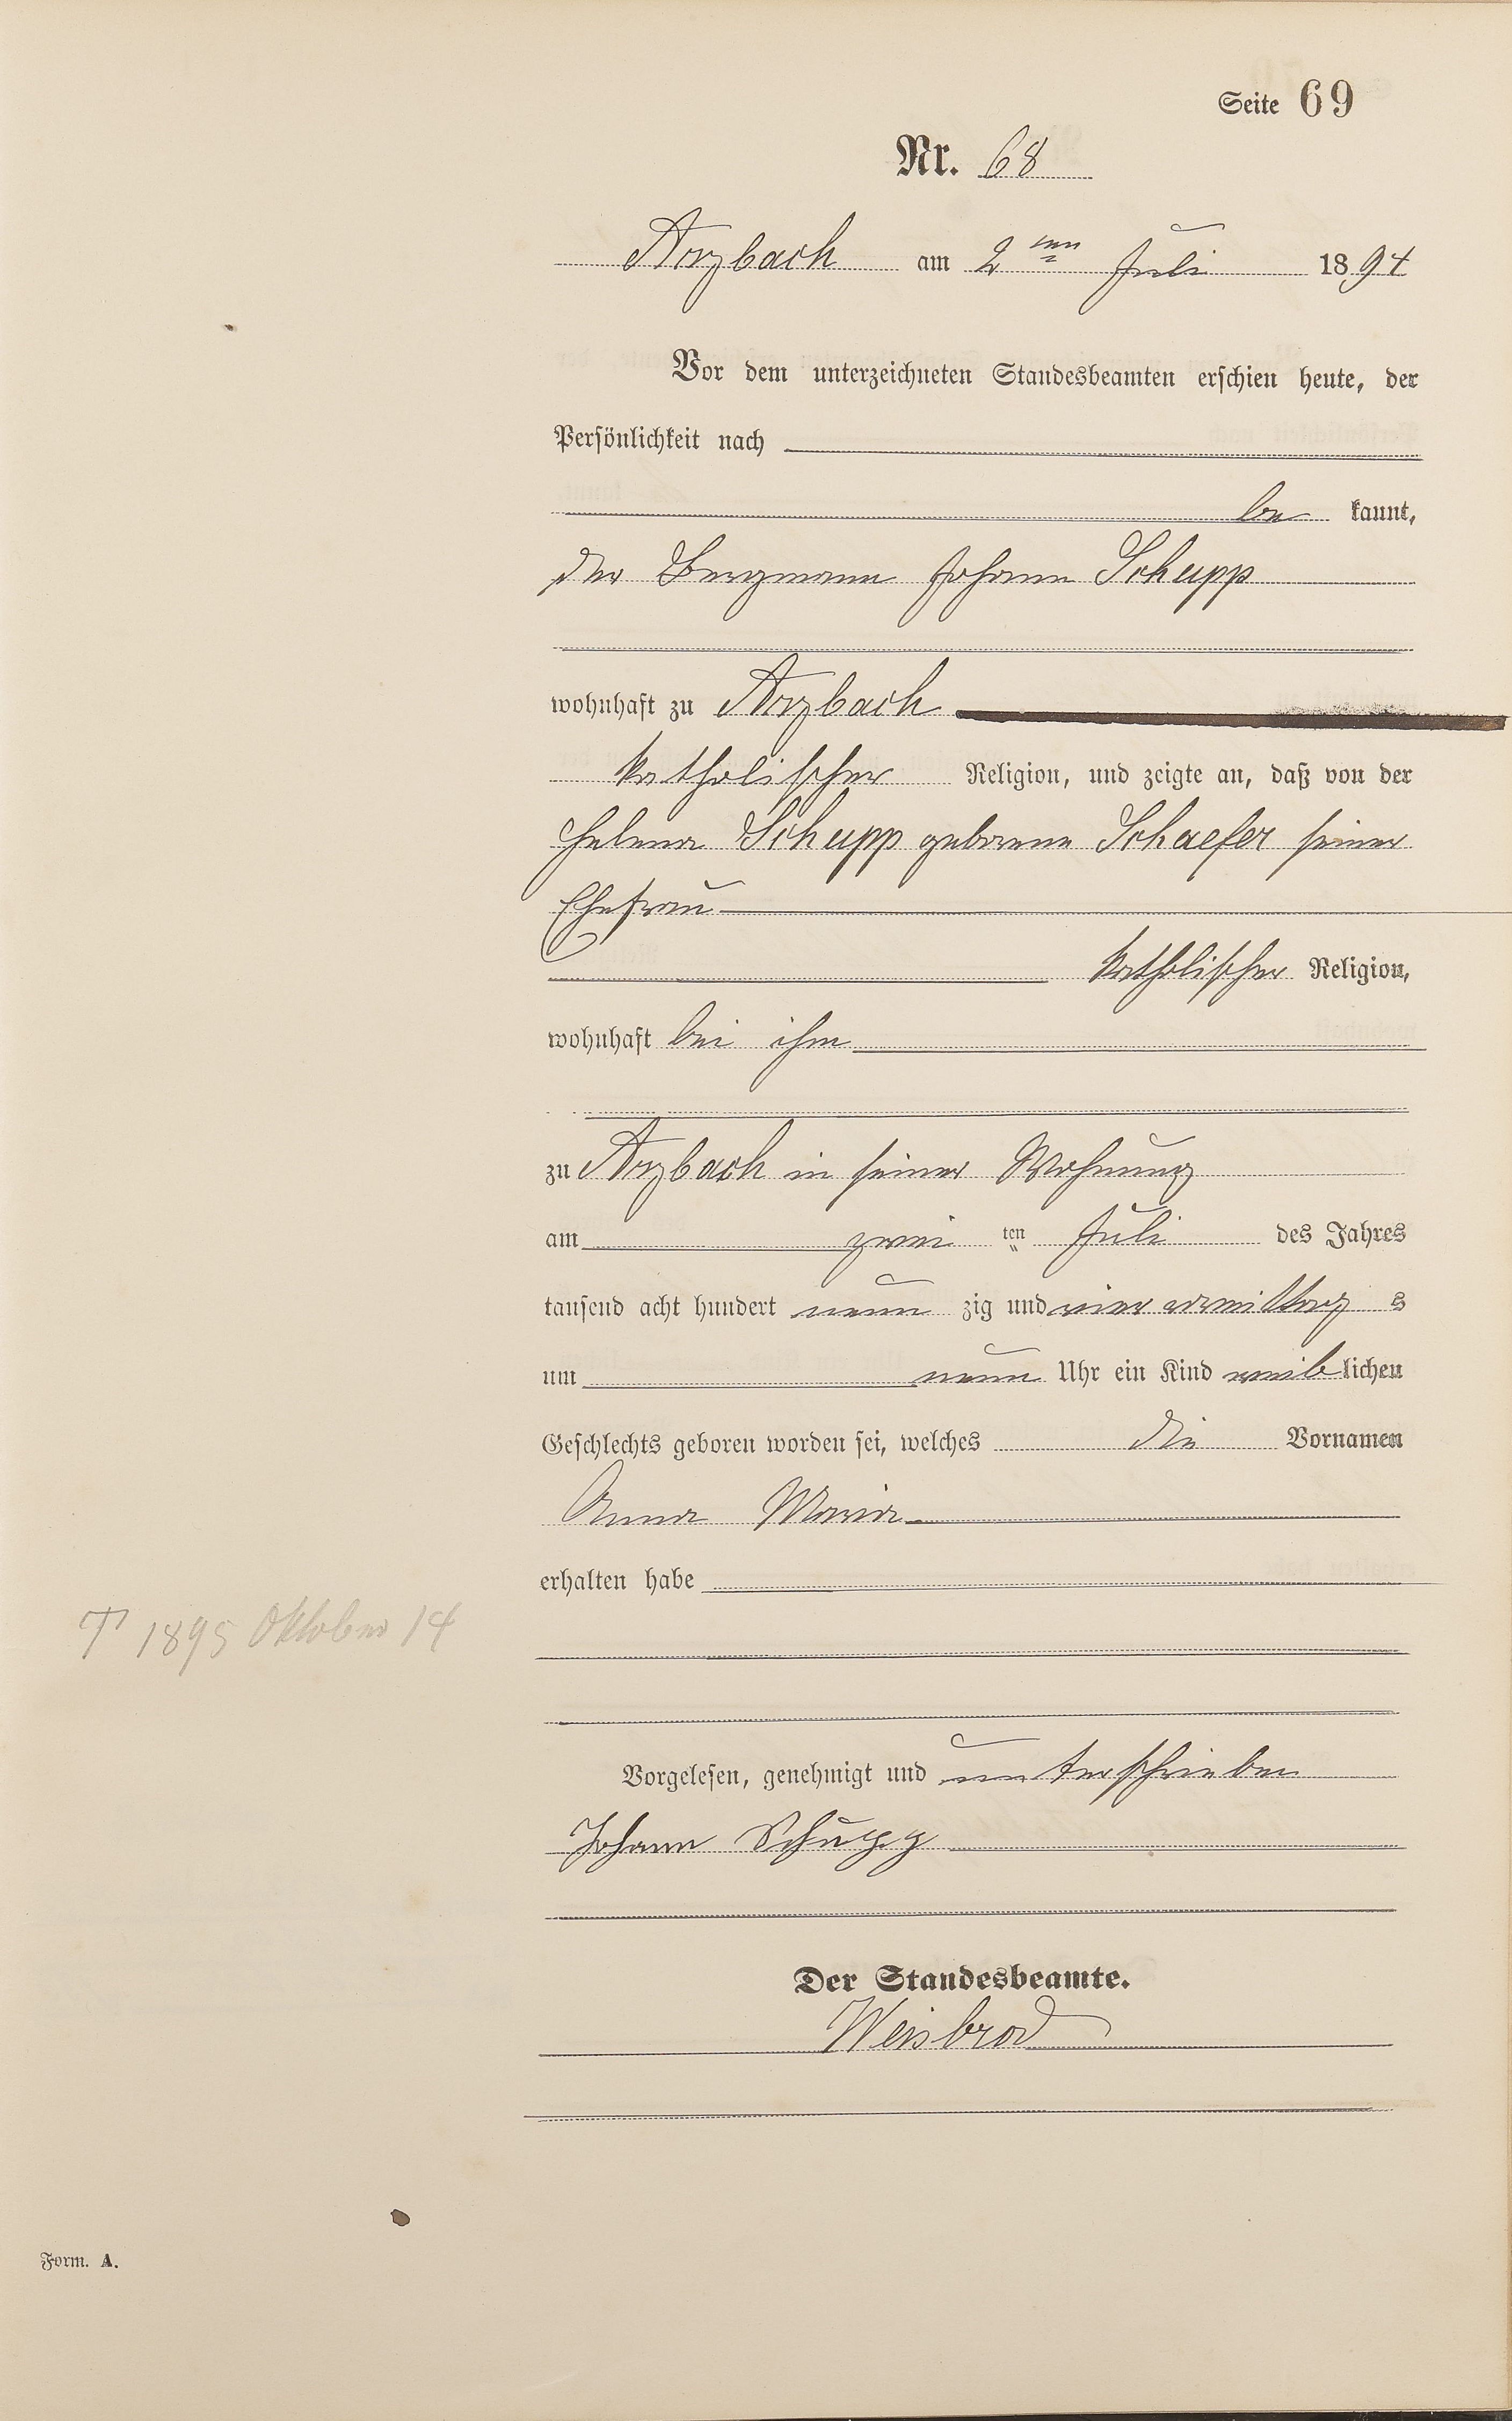 Seite 69
Nr. 68
Arzbach am 2ten Juli 1894
Vor dem unterzeichneten Standesbeamten erschien heute, der
Persönlichkeit nach
be kannt,
der Bergmann Johann Schupp
wohnhaft zu Arzbach
katholischer Religion, und zeigte an, daß von der
Helena Schupp geborene Schaefer seiner
Ehefrau
katholischer Religion,
wohnhaft bei ihm
zu Arzbach in seiner Wohnung
am zwei ten Juli des Jahres
tausend acht hundert neun zig und vier vormittag s
um neun Uhr ein Kind weiblichen
Geschlechts geboren worden sei, welches die Vornamen
Anna Maria
erhalten habe
† 1895 Oktober 14
Vorgelesen, genehmigt und unterschrieben
Johann Schupp
Der Standesbeamte.
Weisbrod
Form. A.